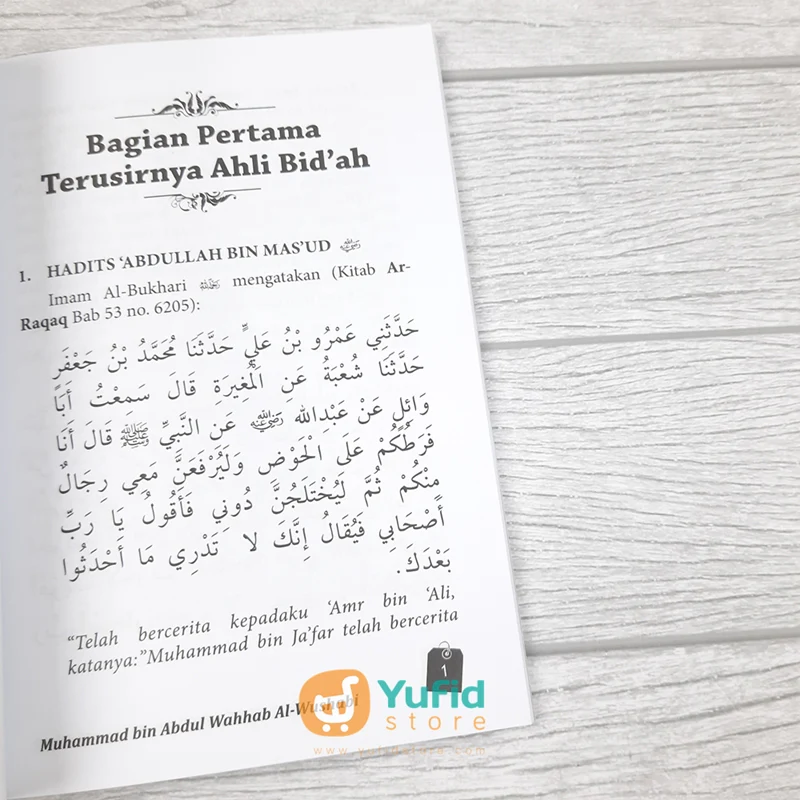 Bagian Pertama
Terusirnya Ahli Bid'ah
1. HADITS 'ABDULLAH BIN MAS'UD رضي الله عنه
Imam Al-Bukhari رحمه الله mengatakan (Kitab Ar-
Raqaq Bab 53 no. 6205):
حَدَّثَنِي عَمْرُو بْنُ عَلِيٍّ حَدَّثَنَا مُحَمَّدُ بْنُ جَعْفَرٍ
حَدَّثَنَا شُعْبَةُ عَنِ الْمُغِيرَةِ قَالَ سَمِعْتُ أَبَا
وَائِلٍ عَنْ عَبْدِالله رضي الله عنه عَنِ النَّبِيِّ ﷺ قَالَ أَنَا
فَرَطُكُمْ عَلَى الْحَوْضِ وَلَيُرْفَعَنَّ مَعِي رِجَالٌ
مِنْكُمْ ثُمَّ لَيُخْتَلَجُنَّ دُونِي فَأَقُولُ يَا رَبِّ
أَصْحَابِي فَيُقَالُ إِنَّكَ لَا تَدْرِي مَا أَحْدَثُوا
بَعْدَكَ.
"Telah bercerita kepadaku 'Amr bin 'Ali,
katanya:"Muhammad bin Ja'far telah bercerita
1
Muhammad bin Abdul Wahhab Al-Wushabi
Yufid
store
www.yufidstore.com